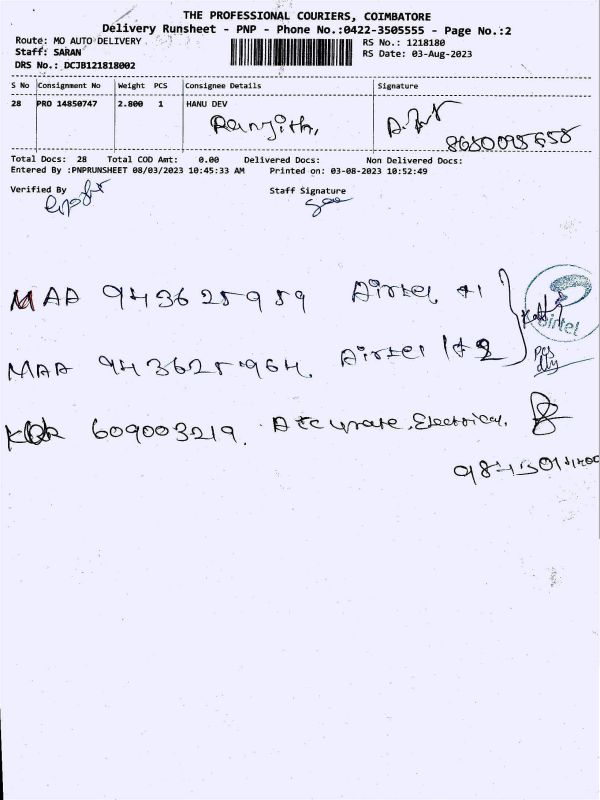 THE PROFESSIONAL COURIERS, COIMBATORE
Delivery Runsheet - PNP - Phone No.:0422-3505555 - Page No.:2
Route: MO AUTO DELIVERY
RS No.: 1218180
Staff: SARAN
RS Date: 03-Aug-2023
DRS No.: DCJB121818002
S No Consignment No Weight PCS Consignee Details Signature
28 PRO 14850747 2.800 1 HANU DEV
Ranjith,
8680095658
Total Docs: 28 Total COD Amt: 0.00 Delivered Docs: Non Delivered Docs:
Entered By :PNPRUNSHEET 08/03/2023 10:45:33 AM Printed on: 03-08-2023 10:52:49
Verified By Staff Signature
MAA 943625959 Airtel +1
MAA 943625964. Airtel 1+2
airtel
609003219. Accurate. Electrical.